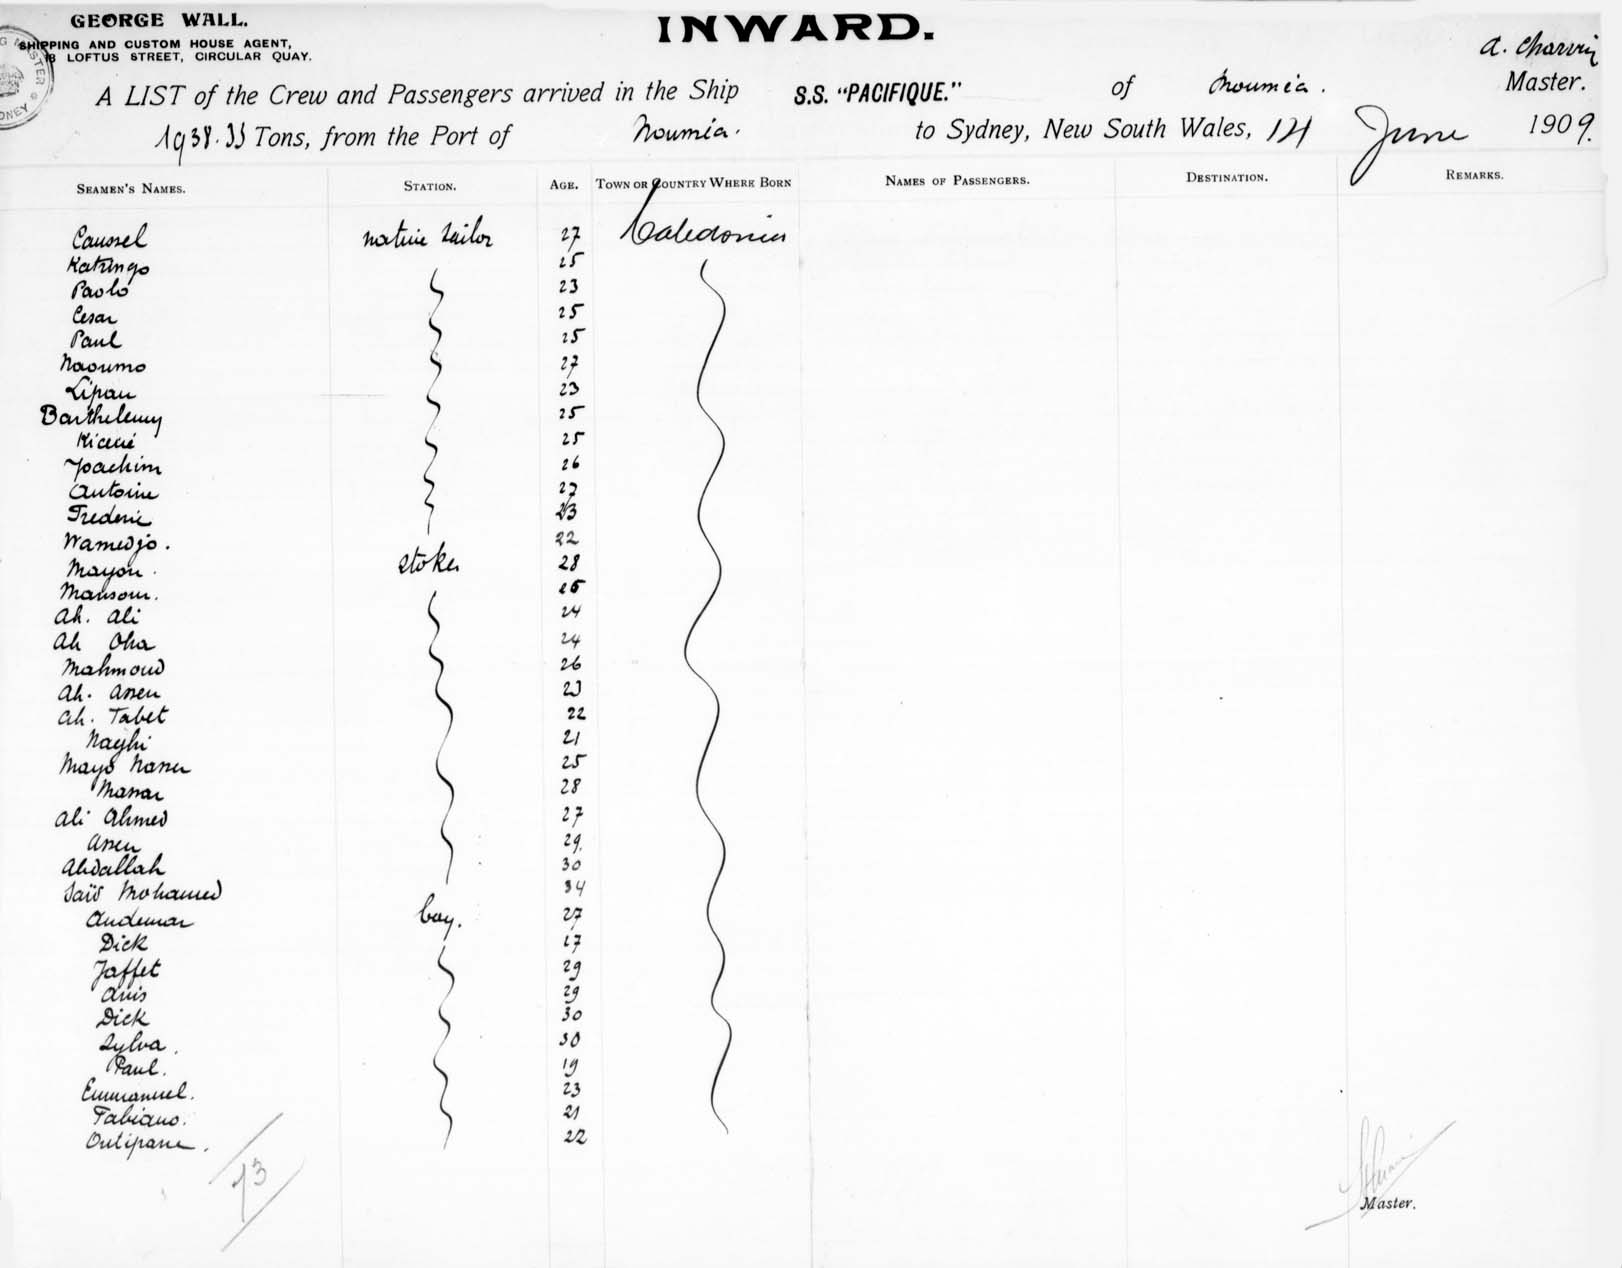 GEORGE WALL.
SHIPPING AND CUSTOM HOUSE AGENT,
LOFTUS STREET, CIRCULAR QUAY.
INWARD.
A. Charvin
Master.
A LIST of the Crew and Passengers arrived in the Ship S.S. "PACIFIQUE." of Nouméa.
1938.55 Tons, from the Port of Nouméa. to Sydney, New South Wales, 14 June 1909.
SEAMEN'S NAMES. STATION. AGE. TOWN OR COUNTRY WHERE BORN NAMES OF PASSENGERS. DESTINATION. REMARKS.
Caussel native sailor 27 Caledonia
Katringo 25
Paolo 23
Cesar 25
Paul 25
Naoumo 27
Lipau 23
Barthelemy 25
25
Joachim 26
Antoine 27
Frederic 23
Wamedjo. 22
Mayou. stoker 28
Mansour. 26
Ah. Ali 24
Ah Oha 24
Mahmoud 26
Ah. Assen 23
Ah. Tabet 22
Nayhi 21
Mayo Nasser 25
Massar 28
Ali Ahmed 27
Assen 29.
Abdallah 30
Saïd Mohamed 34
Andemar boy. 27
Dick 27
Jaffet 29
Anis 29
Dick 30
Sylva. 30
Paul. 19
Emmanuel. 23
Fabiano. 21
Oulipane. 22
73
Master.